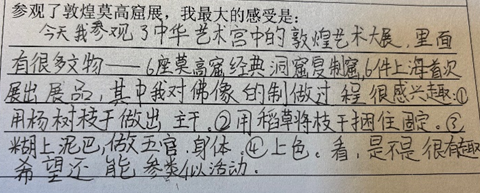 参观了敦煌莫高窟展，我最大的感受是：
今天我参观了中华艺术宫中的敦煌艺术大展，里面
有很多文物——6座莫高窟经典洞窟复制窟，6件上海首次
展出展品，其中我对佛像的制做过程很感兴趣：①
用杨树枝干做出主干。②用稻草将枝干捆住固定。③
糊上泥巴，做五官、身体。④上色。看，是不是很有趣
希望还能参类似活动。